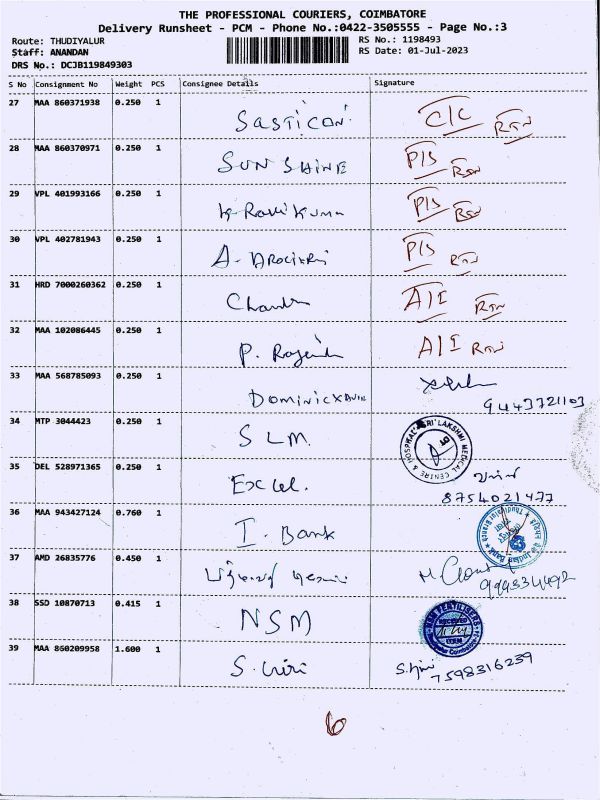 THE PROFESSIONAL COURIERS, COIMBATORE
Delivery Runsheet - PCM - Phone No.:0422-3505555 - Page No.:3
Route: THUDIYALUR
RS No.: 1198493
Staff: ANANDAN
RS Date: 01-Jul-2023
DRS No.: DCJB119849303
S No Consignment No Weight PCS Consignee Details Signature
27 MAA 860371938 0.250 1 Sasticon. C/C RTN
28 MAA 860370971 0.250 1 SUN SHINE P/S RTN
29 VPL 401993166 0.250 1 K. Ravi Kumar P/S RTN
30 VPL 402781943 0.250 1 A. P/S RTN
31 HRD 7000260362 0.250 1 A/I RTN
32 MAA 102086445 0.250 1 P. A/I RTN
33 MAA 568785093 0.250 1 DOMINIC XAVIER
9443721103
34 MTP 3044423 0.250 1 SLM. SRI LAKSHMI MEDICAL CENTRE & HOSPITAL
35 DEL 528971365 0.250 1 Excel.
8754021477
36 MAA 943427124 0.760 1 I. Bank Indian Bank
37 AMD 26835776 0.450 1
38 SSD 10870713 0.415 1 NSM NSM FERTILISERS RECEIVED
39 MAA 860209958 1.600 1 S. Giri S. Giri
7598316239
6